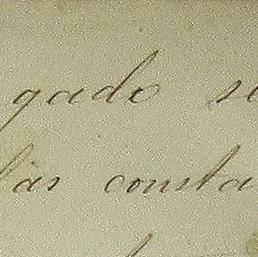 gado se
las consta